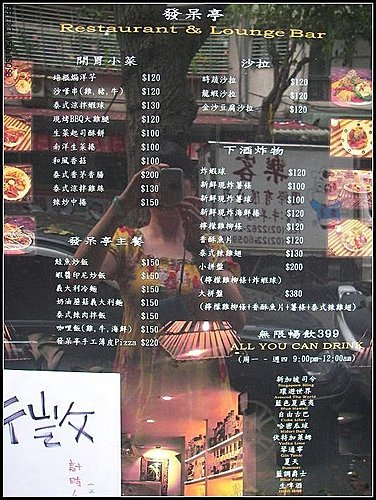 發呆亭
Restaurant & Lounge Bar
開胃小菜
培根焗洋芋 $120
沙嗲串(雞,豬,牛) $120
泰式涼拌蝦球 $130
現烤BBQ大雞腿 $120
生菜起司酥餅 $100
南洋生菜捲 $100
和風香菇 $100
泰式香茅香腸 $200
泰式涼拌雞絲 $130
辣炒中捲 $150
發呆亭主餐
鮭魚炒飯 $150
蝦醬印尼炒飯 $150
義大利冷麵 $150
奶油蘑菇義大利麵 $150
泰式辣肉拌飯 $150
咖哩飯(雞,牛,海鮮) $150
發呆亭手工薄皮Pizza $220
沙拉
時蔬沙拉 $120
龍蝦沙拉 $120
金沙豆腐沙拉 $120
下酒炸物
炸蝦球 $120
新鮮現炸薯條 $100
新鮮現炸薯球 $100
新鮮現炸海鮮捲 $120
檸檬雞柳條 $120
香酥魚片 $120
泰式辣雞翅 $130
小拼盤 $200
(檸檬雞柳條+炸蝦球)
大拼盤 $380
(檸檬雞柳條+香酥魚片+薯條+泰式辣雞翅)
無限暢飲399
ALL YOU CAN DRINK
(周一~週四 9:00pm-12:00am)
新加坡司令
Singapore Sling
環遊世界
Around The World
藍色夏威夷
Blue Hawaii
自由古巴
Cuba Libre
哈密瓜球
Melon Ball
伏特加萊姆
Vodka Lime
琴通寧
Gin Tonic
夏天
藍調爵士
生啤酒
Draft Beer
徵
計時人